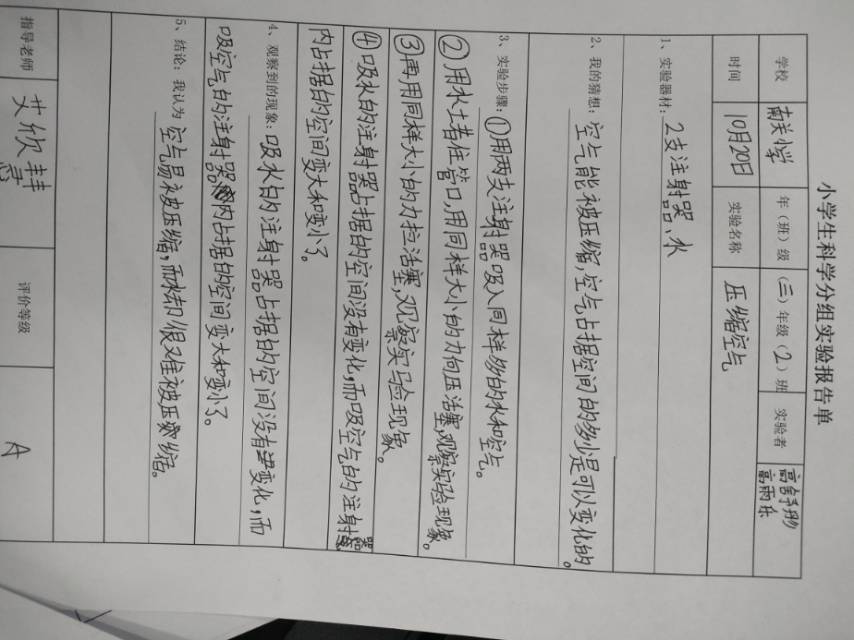 小学生科学分组实验报告单
学校 南关小学 年（班）级 （三）年级（2）班 实验者 高雨乐
时间 10月20日 实验名称 压缩空气
1、实验器材：2支注射器、水
2、我的猜想：空气能被压缩，空气占据空间的多少是可以变化的。
3、实验步骤：①用两支注射器吸入同样多的水和空气。
②用水堵住管口，用同样大小的力向压活塞，观察实验现象。
③再用同样大小的力拉活塞，观察实验现象。
④吸水的注射器占据的空间没有变化，而吸空气的注射器
内占据的空间变大和变小了。
4、观察到的现象：吸水的注射器占据的空间没有变化，而
吸空气的注射器内占据的空间变大和变小了。
5、结论：我认为空气易被压缩，而水却很难被压缩。
指导老师 艾欣慧 评价等级 A